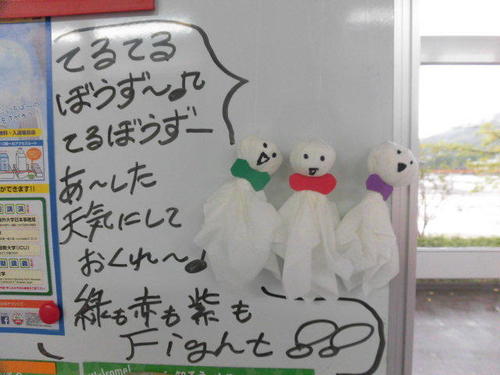 てるてる
ぼうず〜♫
てるぼうずー
あ〜した
天気にして
おくれ〜♩
緑も赤も紫も
Fight
ができます!!
Welcome!